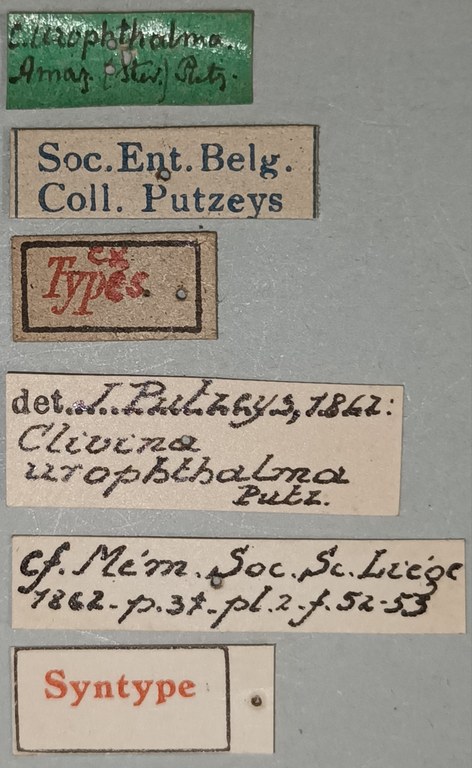 C. urophthalma.
Amaz (Stev.) Putz.
Soc. Ent. Belg.
Coll. Putzeys
ex
Types.
det. J. Putzeys, 1862:
Clivina
urophthalma
Putz.
cf. Mém. Soc. Sc. Liége
1862-p.37-pl.2-f.52-53
Syntype